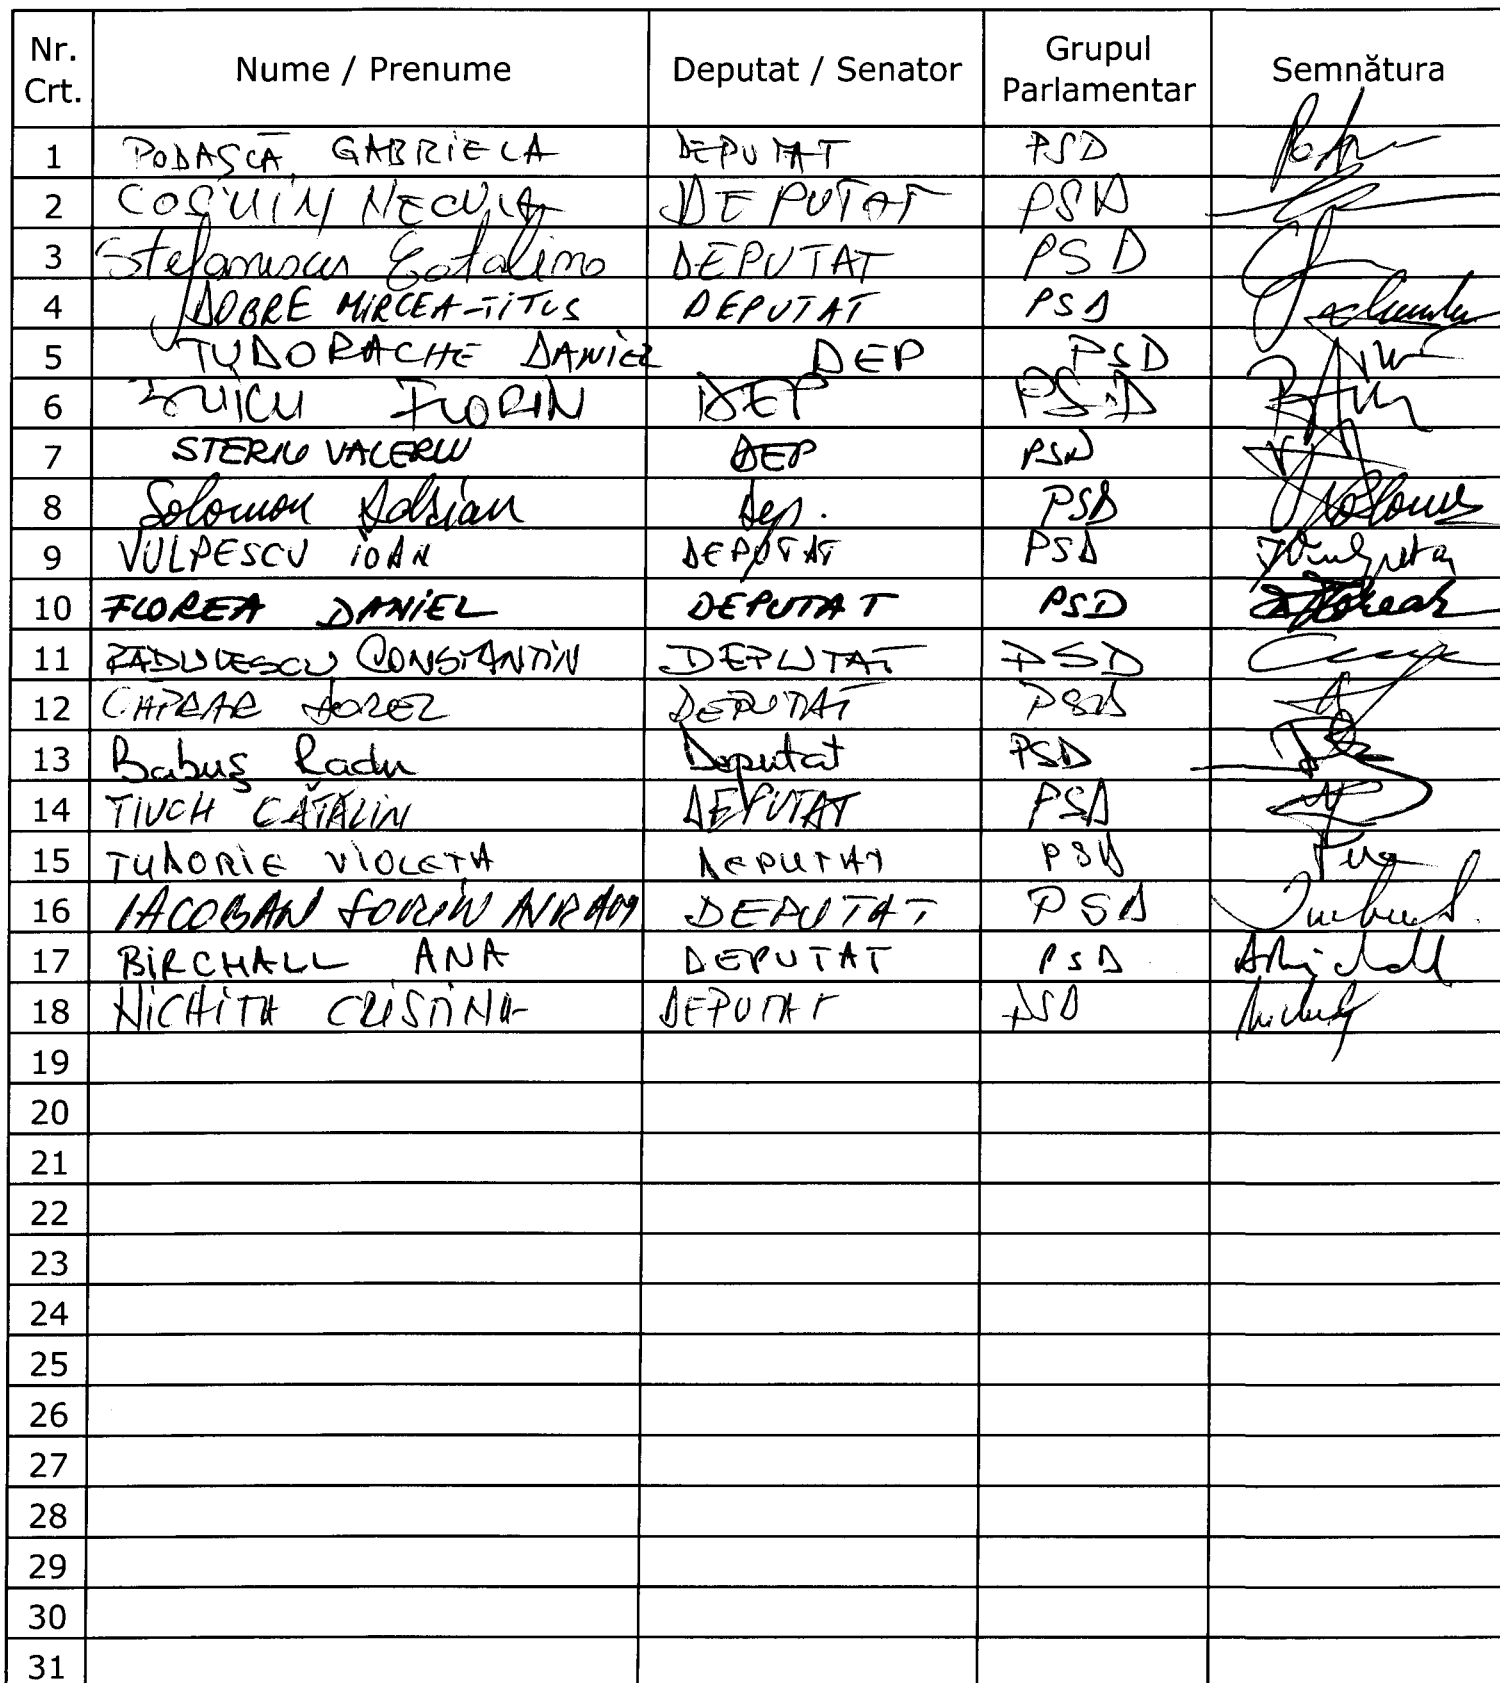 Nr. Crt. Nume / Prenume Deputat / Senator Grupul Parlamentar Semnătura
1 PODAȘCĂ GABRIELA DEPUTAT PSD
2 COSMIN NECULA DEPUTAT PSD
3 Stefanescu DEPUTAT PSD
4 DOBRE MIRCEA-TITUS DEPUTAT PSD
5 TUDORACHE DANIEL DEP PSD
6 FLORIN DEP PSD
7 STERIU VALERIU DEP PSD
8 Solomon Adrian Dep. PSD
9 VULPESCU IOAN DEPUTAT PSD
10 FLOREA DANIEL DEPUTAT PSD
11 RADULESCU CONSTANTIN DEPUTAT PSD
12 DEPUTAT PSD
13 Babuș Radu Deputat PSD
14 TIUCH CĂTĂLIN DEPUTAT PSD
15 TUDORIE VIOLETA DEPUTAT PSD
16 IACOBAN SORIN AVRAM DEPUTAT PSD
17 BIRCHALL ANA DEPUTAT PSD
18 NICHITA CRISTINA DEPUTAT PSD
19
20
21
22
23
24
25
26
27
28
29
30
31